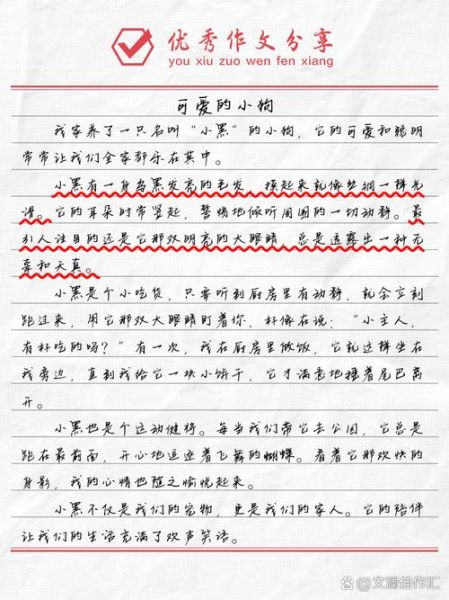 优秀作文分享
you xiu zuo wen fen xiang
可爱的小狗
我家养了一只名叫“小黑”的小狗，它的可爱和聪明
常常让我们全家都乐在其中。
小黑有一身乌黑发亮的毛发，摸起来就像丝绸一样光
滑。它的耳朵时常竖起，警惕地倾听周围的一切动静。最
引人注目的还是它那双明亮的大眼睛，总是透露出一种无
辜和天真。
小黑是个小吃货，只要听到厨房里有动静，就会立刻
跑过来，用它那双大眼睛盯着你，好像在说：“小主人，
有好吃的吗？”有一次，我在厨房里做饭，它就这样坐在
我旁边，直到我给它一块小饼干，它才满意地摇着尾巴离
开。
小黑也是个运动健将。每当我们带它去公园，它总是
跑在最前面，开心地追逐着飞舞的蝴蝶。看着它那欢快的
身影，我的心情也随之愉悦起来。
小黑不仅是我们的宠物，更是我们的家人。它的陪伴
让我们的生活充满了欢声笑语。
@文澜佳作汇